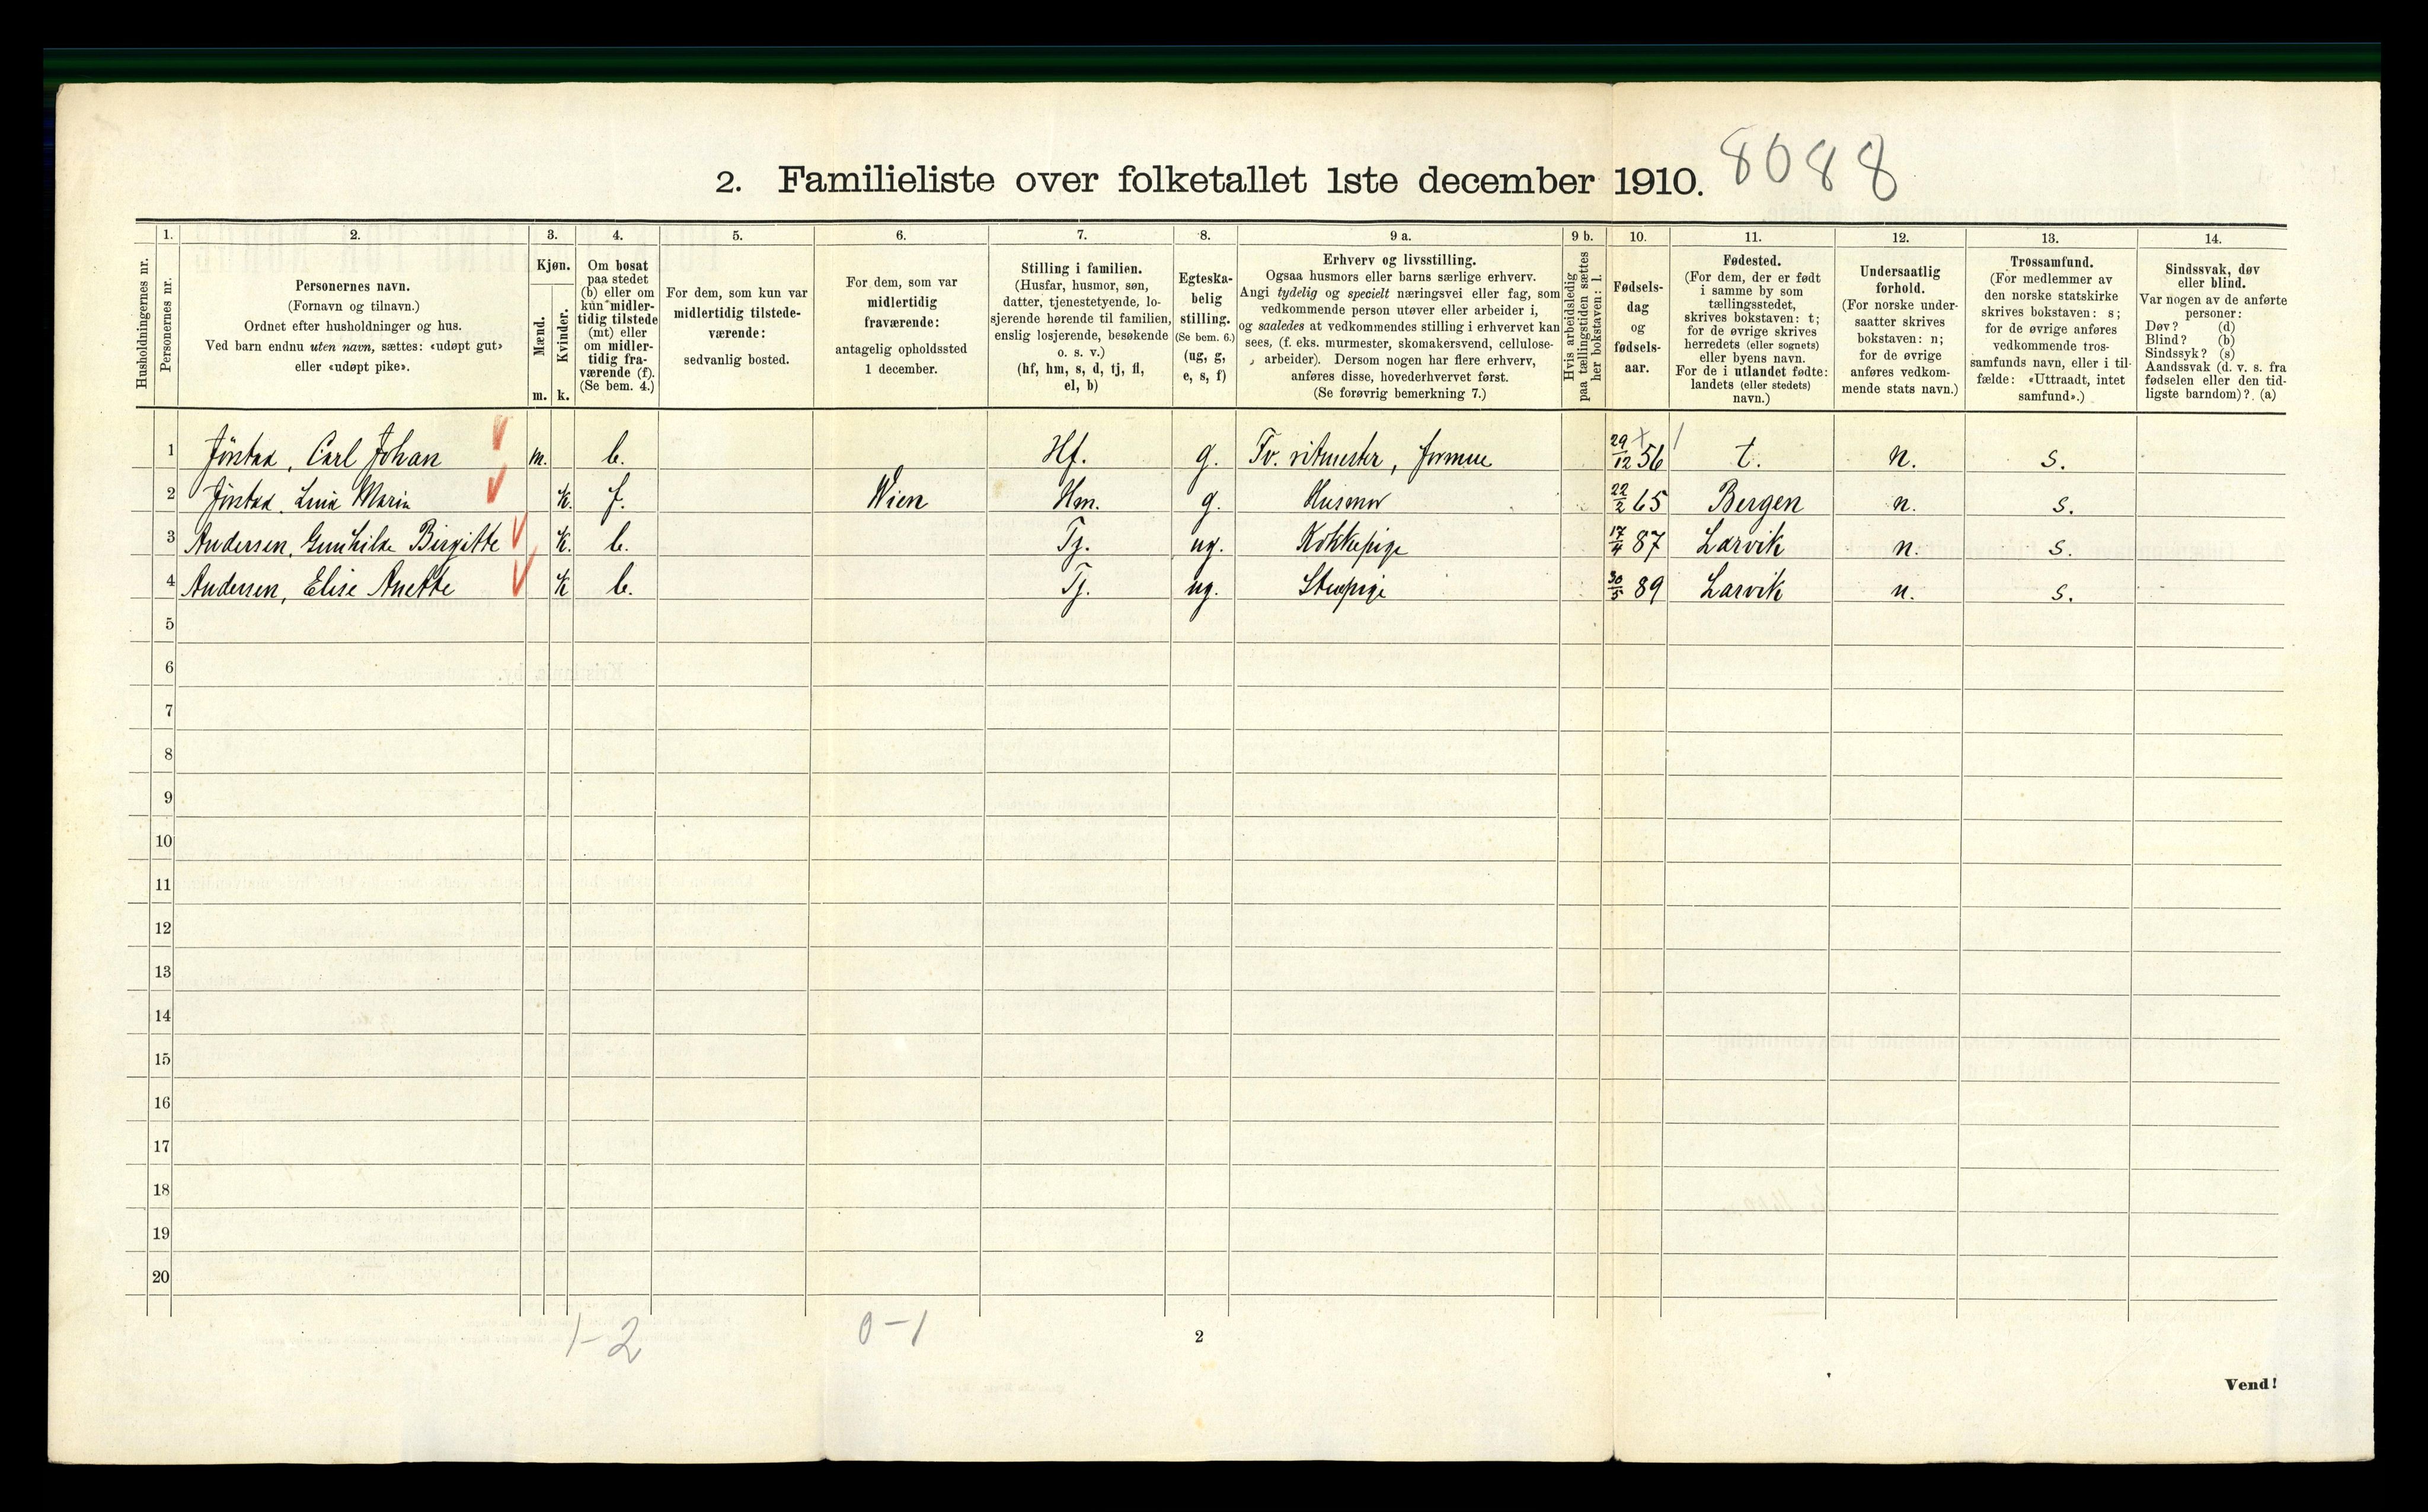 2. Familieliste over folketallet 1ste december 1910. 8088
1. 2. 3. 4. 5. 6. 7. 8. 9 a. 9 b. 10. 11. 12. 13. 14.
Husholdningernes nr.
Personernes nr.
Personernes navn.
(Fornavn og tilnavn.)
Ordnet efter husholdninger og hus.
Ved barn endnu uten navn, sættes: «udøpt gut»
eller «udøpt pike».
Kjøn.
Mænd.
Kvinder.
m. k.
Om bosat
paa stedet
(b) eller om
kun midler-
tidig tilstede
(mt) eller
om midler-
tidig fra-
værende (f).
(Se bem. 4.)
For dem, som kun var
midlertidig tilstede-
værende:
sedvanlig bosted.
For dem, som var
midlertidig
fraværende:
antagelig opholdssted
1 december.
Stilling i familien.
(Husfar, husmor, søn,
datter, tjenestetyende, lo-
sjerende hørende til familien,
enslig losjerende, besøkende
o. s. v.)
(hf, hm, s, d, tj, fl,
el, b)
Egteska-
belig
stilling.
(Se bem. 6.)
(ug, g,
e, s, f)
Erhverv og livsstilling.
Ogsaa husmors eller barns særlige erhverv.
Angi tydelig og specielt næringsvei eller fag, som
vedkommende person utøver eller arbeider i,
og saaledes at vedkommendes stilling i erhvervet kan
sees, (f. eks. murmester, skomakersvend, cellulose-
arbeider). Dersom nogen har flere erhverv,
anføres disse, hovederhvervet først.
(Se forøvrig bemerkning 7.)
Hvis arbeidsledig
paa tællingstiden sættes
her bokstaven: l.
Fødsels-
dag
og
fødsels-
aar.
Fødested.
(For dem, der er født
i samme by som
tællingsstedet,
skrives bokstaven: t;
for de øvrige skrives
herredets (eller sognets)
eller byens navn.
For de i utlandet fødte:
landets (eller stedets)
navn.)
Undersaatlig
forhold.
(For norske under-
saatter skrives
bokstaven: n;
for de øvrige
anføres vedkom-
mende stats navn.)
Trossamfund.
(For medlemmer av
den norske statskirke
skrives bokstaven: s;
for de øvrige anføres
vedkommende tros-
samfunds navn, eller i til-
fælde: «Uttraadt, intet
samfund».)
Sindssvak, døv
eller blind.
Var nogen av de anførte
personer:
Døv? (d)
Blind? (b)
Sindssyk? (s)
Aandssvak (d. v. s. fra
fødselen eller den tid-
ligste barndom)? (a)
1 Jöntad, Carl Johan m. b. Hf. g. Fv. ritmester, formue 29/12 56 t. n. s.
2 Jöntad, Maria k. f. Wien Hm. g. Husmor 22/2 65 Bergen n. s.
3 Andersen, Gunhilde Birgitte k. b. Tj. ug. Kokkepige 17/4 87 Larvik n. s.
4 Andersen, Elise Anette k b. Tj. ug. Stuepige 30/5 89 Larvik n. s.
5
6
7
8
9
10
11
12
13
14
15
16
17
18
19
20
1-2 0-1
2
Vend!